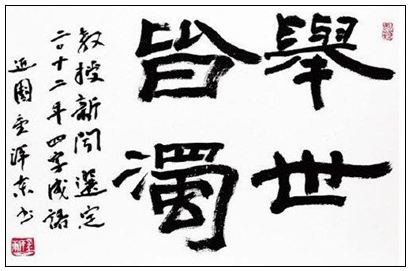 舉世
皆濁
教授新聞選定
二〇十二年四字成語
近園 金洋東 書